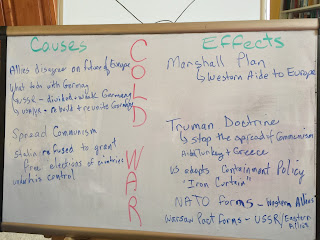 Causes
Allies disagree on future of Europe
What to do with Germany
USSR - divided + weak Germany
US/UK - rebuild + reunite Germany
Spread Communism
Stalin refused to grant
free elections of countries
under his control
COLD WAR
Effects
Marshall Plan
Western Aide to Europe
Truman Doctrine
stop the spread of Communism
Aids Turkey + Greece
US adopts Containment Policy
"Iron Curtain"
NATO forms - Western Allies
Warsaw Pact forms - USSR/Eastern
Allies